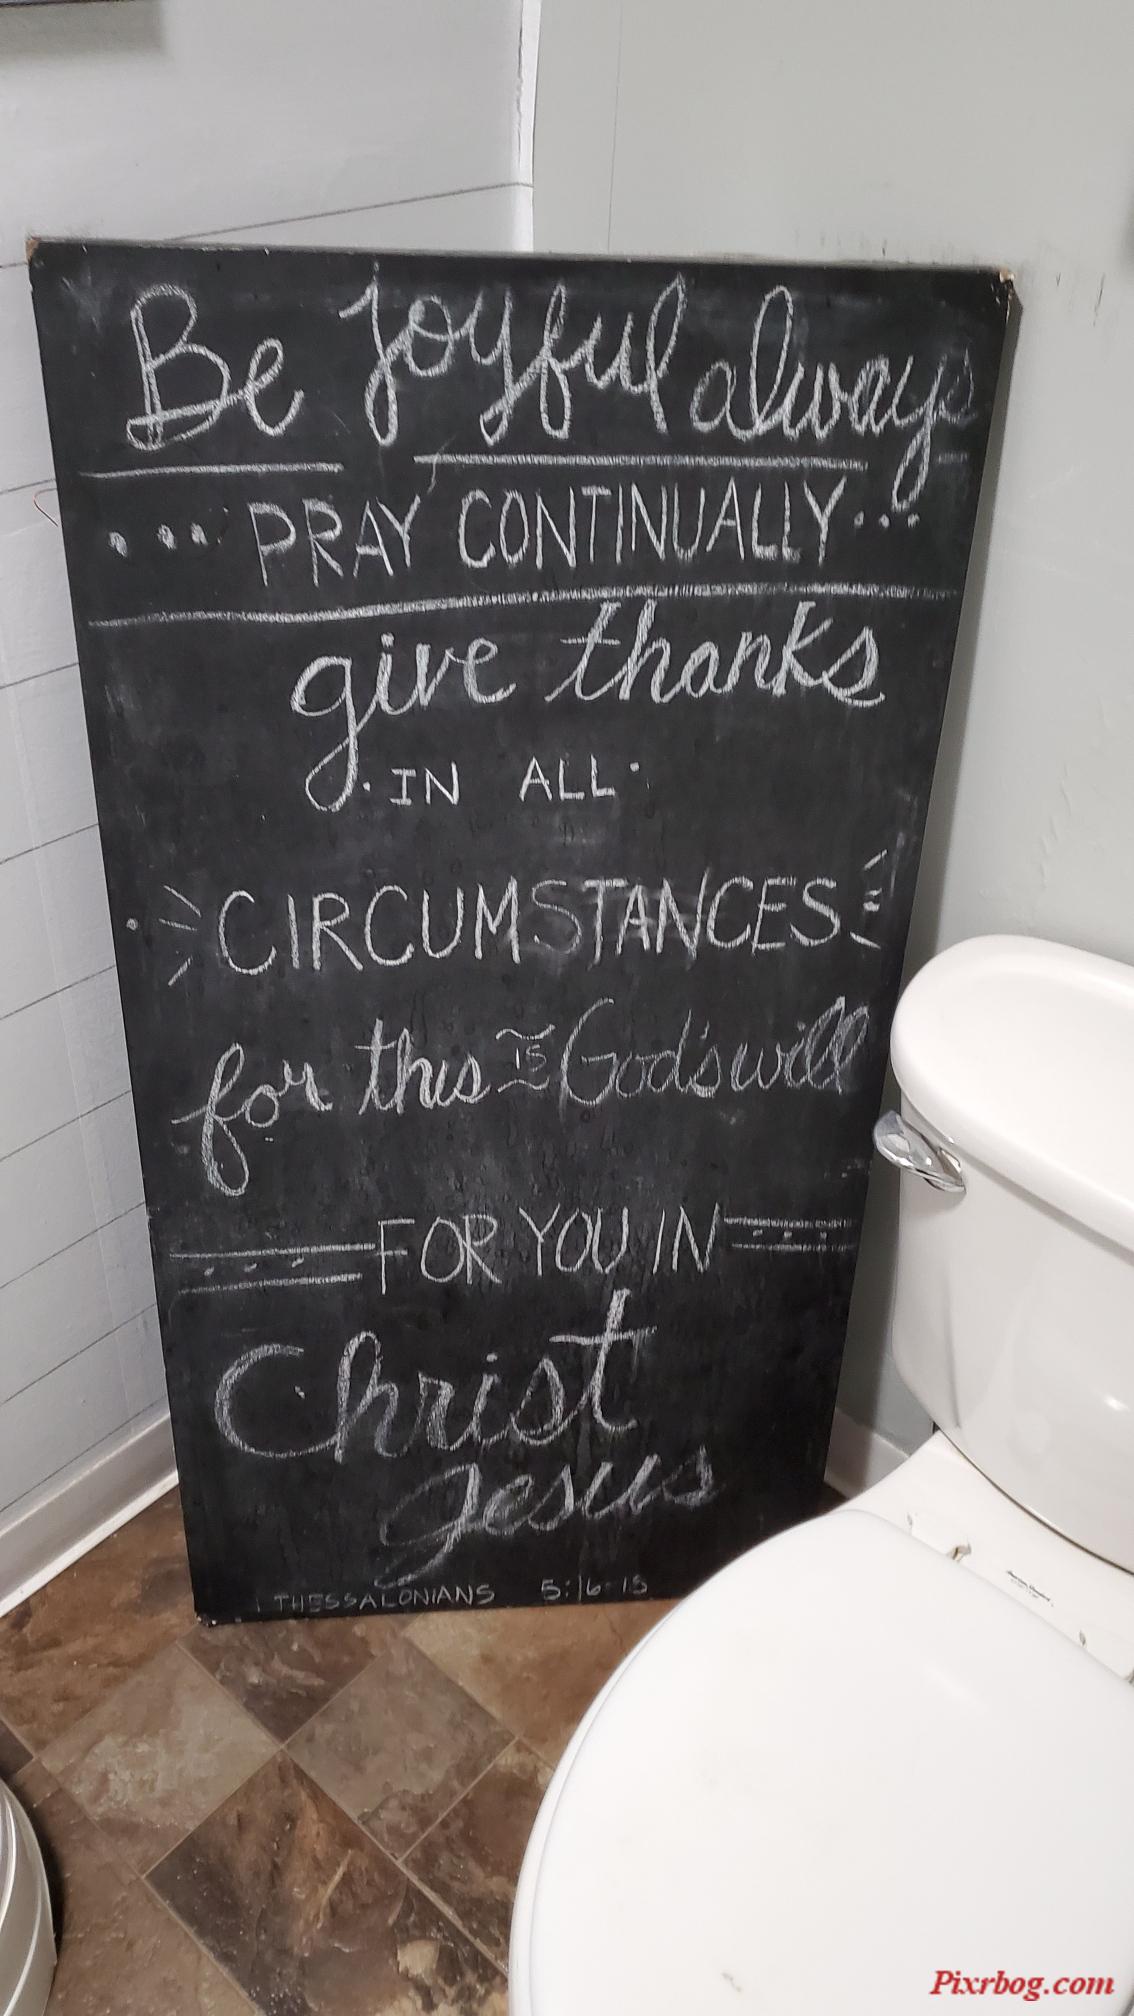 Be joyful always
... PRAY CONTINUALLY ...
give thanks
· IN ALL ·
CIRCUMSTANCES
for this IS God's will
FOR YOU IN
Christ
Jesus
THESSALONIANS 5:16-15
Pixrbog.com